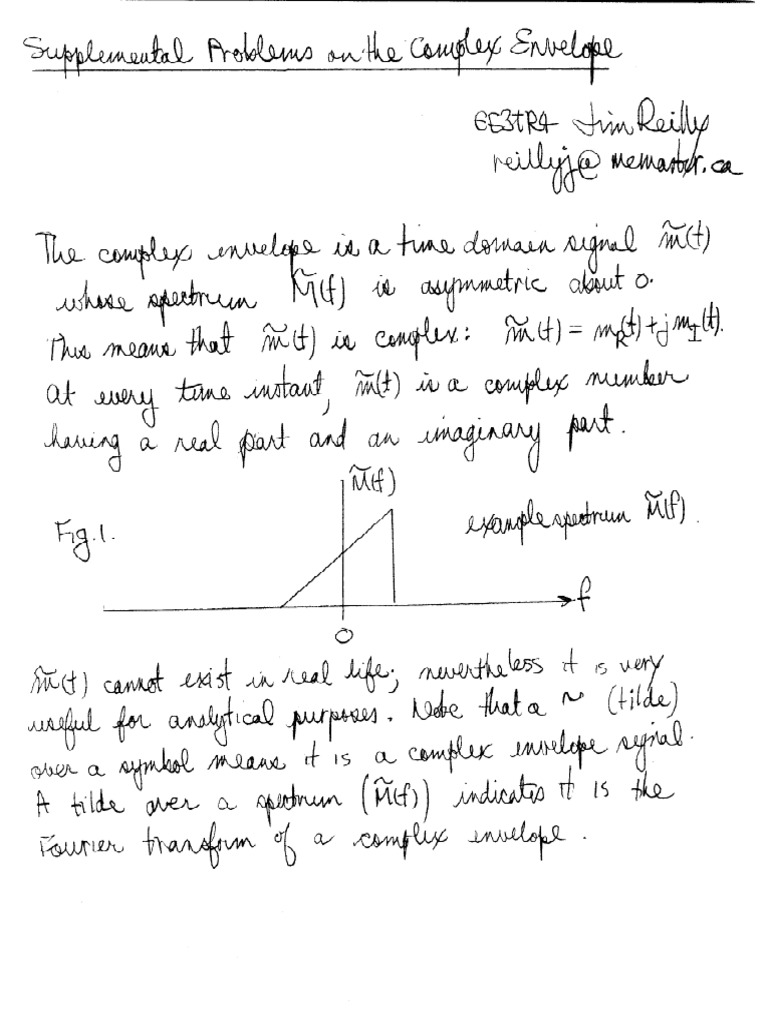 Supplemental Problems on the Complex Envelope
EE3TR4 Jim Reilly
reillyj@mcmaster.ca
The complex envelope is a time domain signal m̃(t)
whose spectrum M̃(f) is asymmetric about 0.
This means that m̃(t) is complex: m̃(t) = m_R(t) + j m_I(t).
At every time instant, m̃(t) is a complex number
having a real part and an imaginary part.
M̃(f)
Fig. 1.
example spectrum M̃(f).
f
0
m̃(t) cannot exist in real life; nevertheless it is very
useful for analytical purposes. Note that a ~ (tilde)
over a symbol means it is a complex envelope signal.
A tilde over a spectrum (M̃(f)) indicates it is the
Fourier transform of a complex envelope.